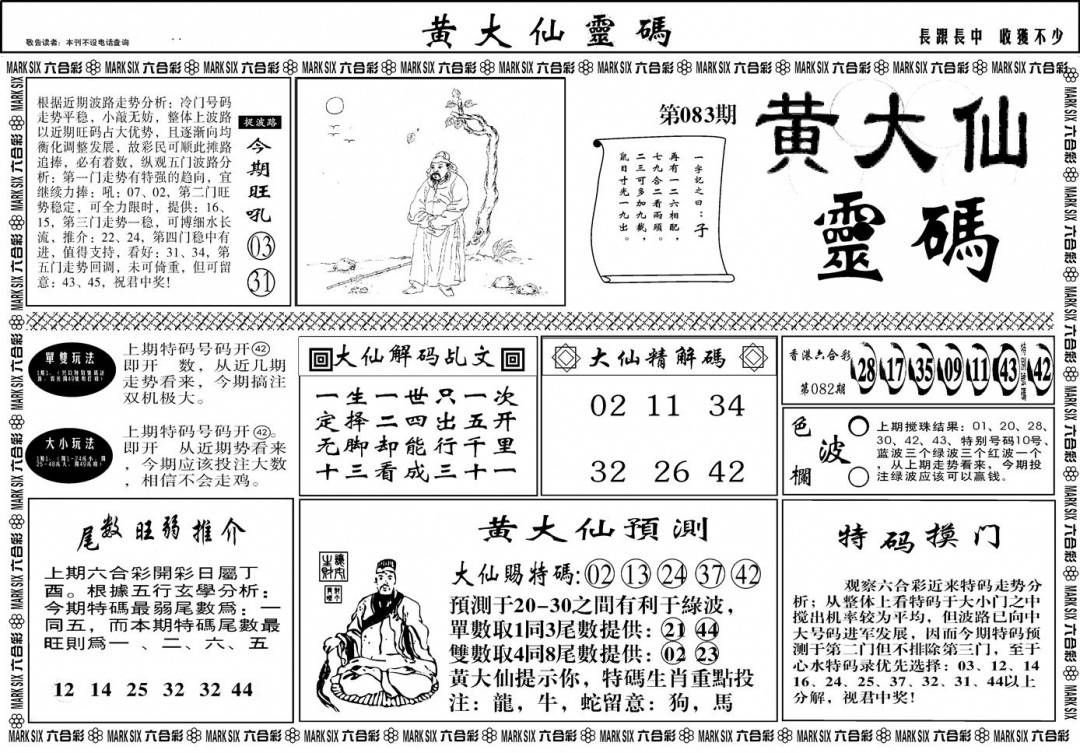 敬告读者：本刊不设电话查询
黄大仙靈碼
長跟長中 收獲不少
MARK SIX 六合彩 MARK SIX 六合彩 MARK SIX 六合彩 MARK SIX 六合彩 MARK SIX 六合彩 MARK SIX 六合彩 MARK SIX 六合彩 MARK SIX 六合彩 MARK SIX 六合彩 MARK SIX 六合彩 MARK SIX 六合彩
根据近期波路走势分析：冷门号码
走势平稳，小敲无妨，整体上波路
以近期旺码占大优势，且逐渐向均
衡化调整发展，故彩民可顺此摊路
追捧，必有着数，纵观五门波路分
析：第一门走势有特强的趋向，宜
继续力捧：吼：07、02，第二门旺
势稳定，可全力限时，提供：16、
15，第三门走势一稳，可博细水长
流，推介：22、24，第四门稳中有
进，值得支持，看好：31、34，第
五门走势回调，未可倚重，但可留
意：43、45，祝君中奖！
捉波路
今期旺吼
03
31
第083期
一字记之曰：子
再有一二六相配，
七九合二看两頭。
二三可多加九截，
鼠目寸光一九出。
黄大仙
靈碼
單雙玩法
上期特码号码开㊷
即开 数，从近几期
走势看来，今期搞注
双机极大。
大小玩法
上期特码号码开㊷。
即开 从近期势看来
，今期应该投注大数
，相信不会走鸡。
大仙解码乩文
一生一世只一次
定择二四出五开
无脚却能行千里
十三看成三十一
大仙精解碼
02 11 34
32 26 42
香港六合彩
第082期
28 17 35 09 11 43 特别號碼 42
色波欄
上期搅珠结果：01、20、28、
30、42、43、特别号码10号、
蓝波三个绿波三个红波一个
，从上期走势看来，今期投
注绿波应该可以赢钱。
尾数旺弱推介
上期六合彩開彩日屬丁
酉。根據五行玄學分析：
今期特碼最弱尾數爲：一
同五，而本期特碼尾數最
旺則爲一 、二、六、五
12 14 25 32 32 44
黄大仙預測
大仙賜特碼:02 13 24 37 42
預測于20-30之間有利于綠波，
單數取1同3尾數提供：21 44
雙數取4同8尾數提供：02 23
黄大仙提示你，特碼生肖重點投
注：龍，牛，蛇留意：狗，馬
特码摸门
观察六合彩近来特码走势分
析；从整体上看特码于大小门之中
搅出机率较为平均，但波路已向中
大号码进军发展，因而今期特码预
测于第二门但不排除第三门，至于
心水特码录优先选择：03、12、14
16、24、25、37、32、31、44以上
分解，视君中奖！
MARK SIX 六合彩 MARK SIX 六合彩 MARK SIX 六合彩 MARK SIX 六合彩 MARK SIX 六合彩 MARK SIX 六合彩 MARK SIX 六合彩 MARK SIX 六合彩 MARK SIX 六合彩 MARK SIX 六合彩 MARK SIX 六合彩